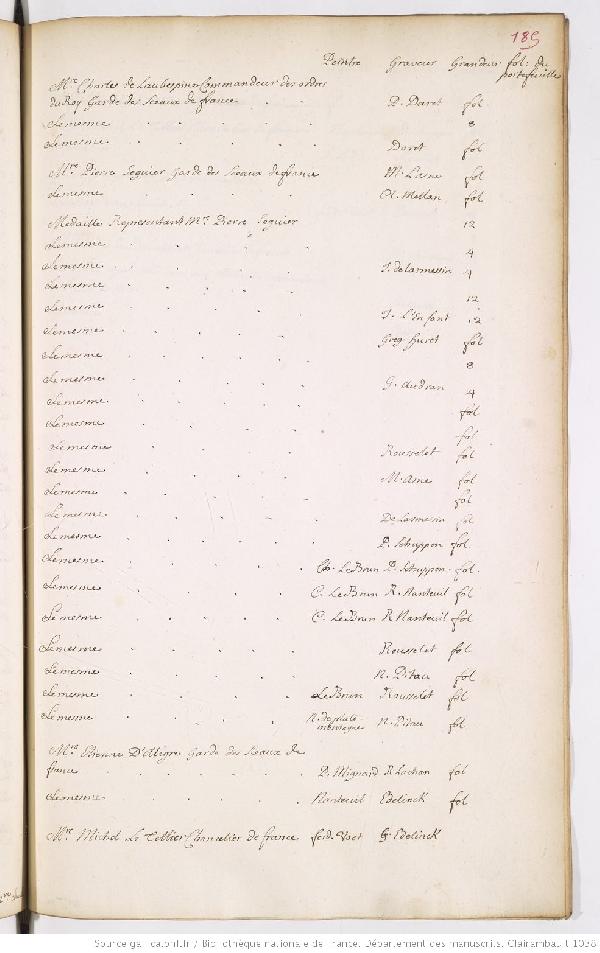 185
Peintre Graveur Grandeur fol. du portefeuille
Mre. Charles de Laubespine Commandeur des ordres
du Roy Garde des Sceaux de france . . P. Daret fol
Lemesme . . . . . 8
Lemesme . . . . . Daret fol
Mre. Pierre Seguier Garde des Sceaux de france M. Lasne fol
Lemesme . . . . . Cl. Mellan fol
Medaille Representant Mre. Pierre Seguier 12
Lemesme . . . . 4
Lemesme . . . . . J. de Larmessin 4
Lemesme . . . . . 12
Lemesme . . . . . J. L'enfant 12
Lemesme . . . . . Greg. huret fol
Lemesme . . . . . 8
Lemesme . . . . . G. Audran 4
Lemesme . . . . . fol
Lemesme . . . . . fol
Lemesme . . . . . Rousselet fol
Lemesme . . . . . M. Asne fol
Lemesme . . . . . fol
Lemesme . . . . . De Larmessin fol
Lemesme . . . . . P. Schuppen fol.
Lemesme . . . . . LeBrun P. Schuppen . fol.
Lemesme . . . . . C. LeBrun R. Nanteuil fol
Lemesme . . . . . C. LeBrun R. Nanteuil fol
Lemesme . . . . . Rousselet fol
Lemesme . . . . . N. Pitau fol
Lemesme . . . . . LeBrun Rousselet fol
Lemesme . . . . . N. de plate montagne N. Pitau fol
Mre. Etienne D'Aligre Garde des Sceaux de
france . . . . . P. Mignard R Lochon fol
Lemesme . . . . . Nanteuil Edelinck fol
Mre. Michel Le Tellier Chancelier de france ferd. Voet G. Edelinck
Source gallica.bnf.fr / Bibliothèque nationale de France. Département des manuscrits. Clairambault 1038